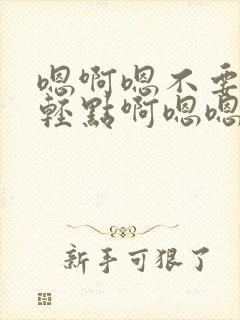 嗯啊嗯不要
輕點啊嗯嗯
新手可狠了